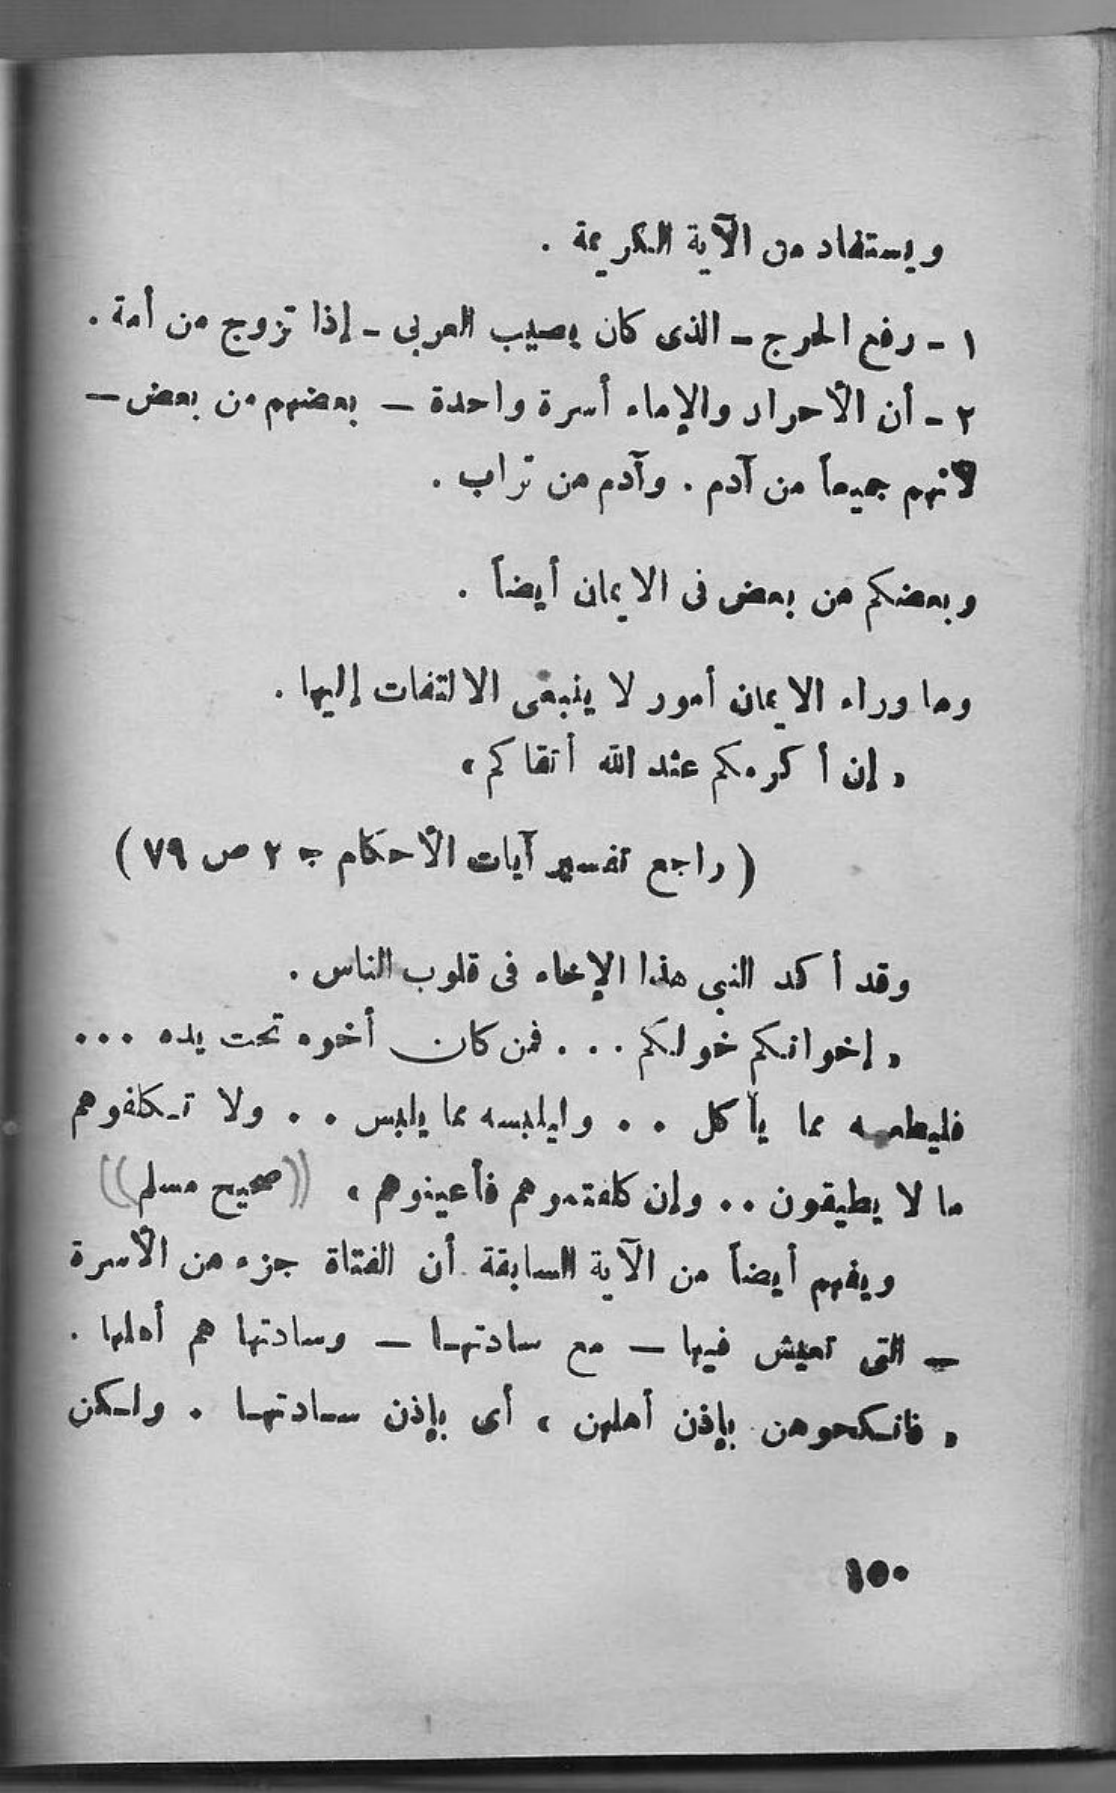 ويستفاد من الآية الكريمة .
١ - رفع الحرج - الذى كان يصيب العربى - إذا تزوج من أمة .
٢ - أن الأحرار والإماء أسرة واحدة - بعضهم من بعض -
لأنهم جميعاً من آدم . وآدم من تراب .
وبعضكم من بعض فى الايمان أيضاً .
وما وراء الايمان أمور لا ينبغى الالتفات إليها .
« إن أكرمكم عند الله أتقاكم »
( راجع تفسير آيات الأحكام ج ٢ ص ٧٩ )
وقد أكد النبى هذا الإخاء فى قلوب الناس .
« إخوانكم خولكم . . . فمن كان أخوه تحت يده ...
فليطعمه مما يأكل . . وليلبسه مما يلبس . . ولا تكلفوهم
ما لا يطيقون .. وإن كلفتموهم فأعينوهم » ((صحيح مسلم))
ويفهم أيضاً من الآية السابقة أن الفتاة جزء من الأسرة
- التى تعيش فيها - مع سادتها - وسادتها هم أهلها .
« فانكحوهن بإذن أهلهن » أى بإذن سادتها . ولكن
١٥٠